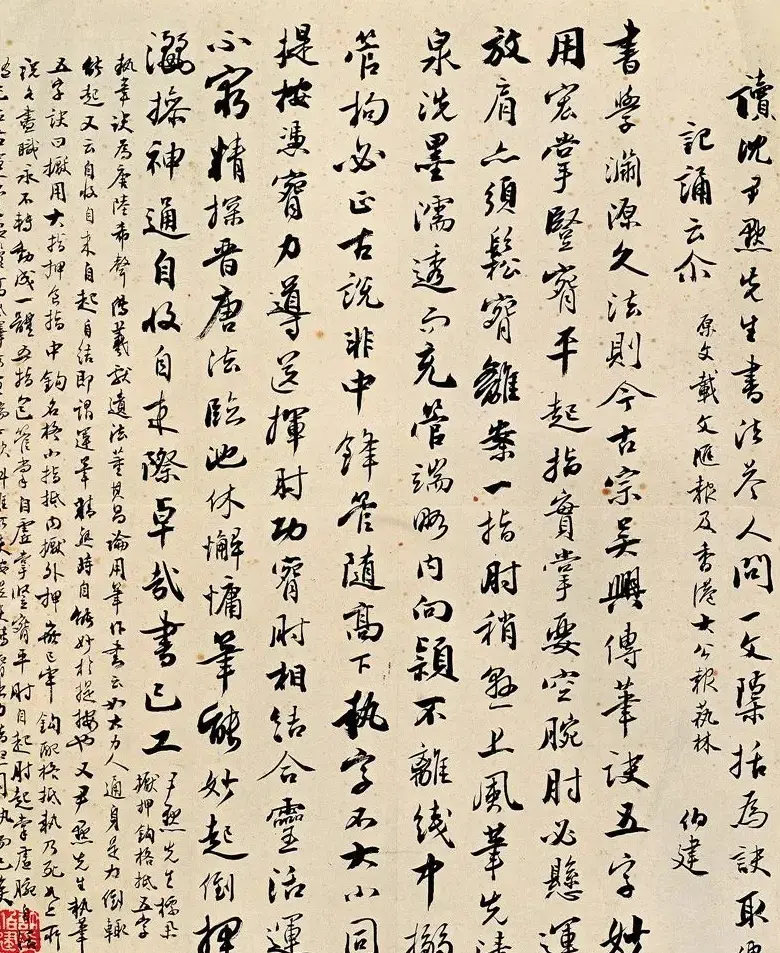 讀沈尹默先生書法答人問一文檃括為訣取便
記誦云尒 原文載文匯報及香港大公報藝林 伯建
書學淵源久法則今古宗吳興傳筆訣五字妙
用宏掌豎腕平起指實掌要空腕肘必懸運
放肩亦須鬆腕離案一指肘稍懸上風筆先清
泉洗墨濡透而充管端略內向穎不離綫中搦
管拘必正古說非中鋒管隨高下執字不大小同
提按憑腕力導送揮肘功腕肘相結合靈活運
不窮精探晉唐法臨池休懈慵筆能妙起倒押
操神通自收自束際卓哉書已工 尹默先生標舉
擫押鉤格抵五字
執筆訣為唐陸希聲傳羲獻遺法董其昌論用筆作書云如大力人通身是力倒輒
能起又云自收自束自起自結即謂運筆精熟時自能妙於提按也又尹默先生執筆
五字訣曰擫用大指押食指中鉤名格小指抵內擫外押牢鉤配格抵執乃死如上所
說各盡職永不轉動成一體五指包管掌自虛掌豎腕平肘自起肘起掌虛腕自活